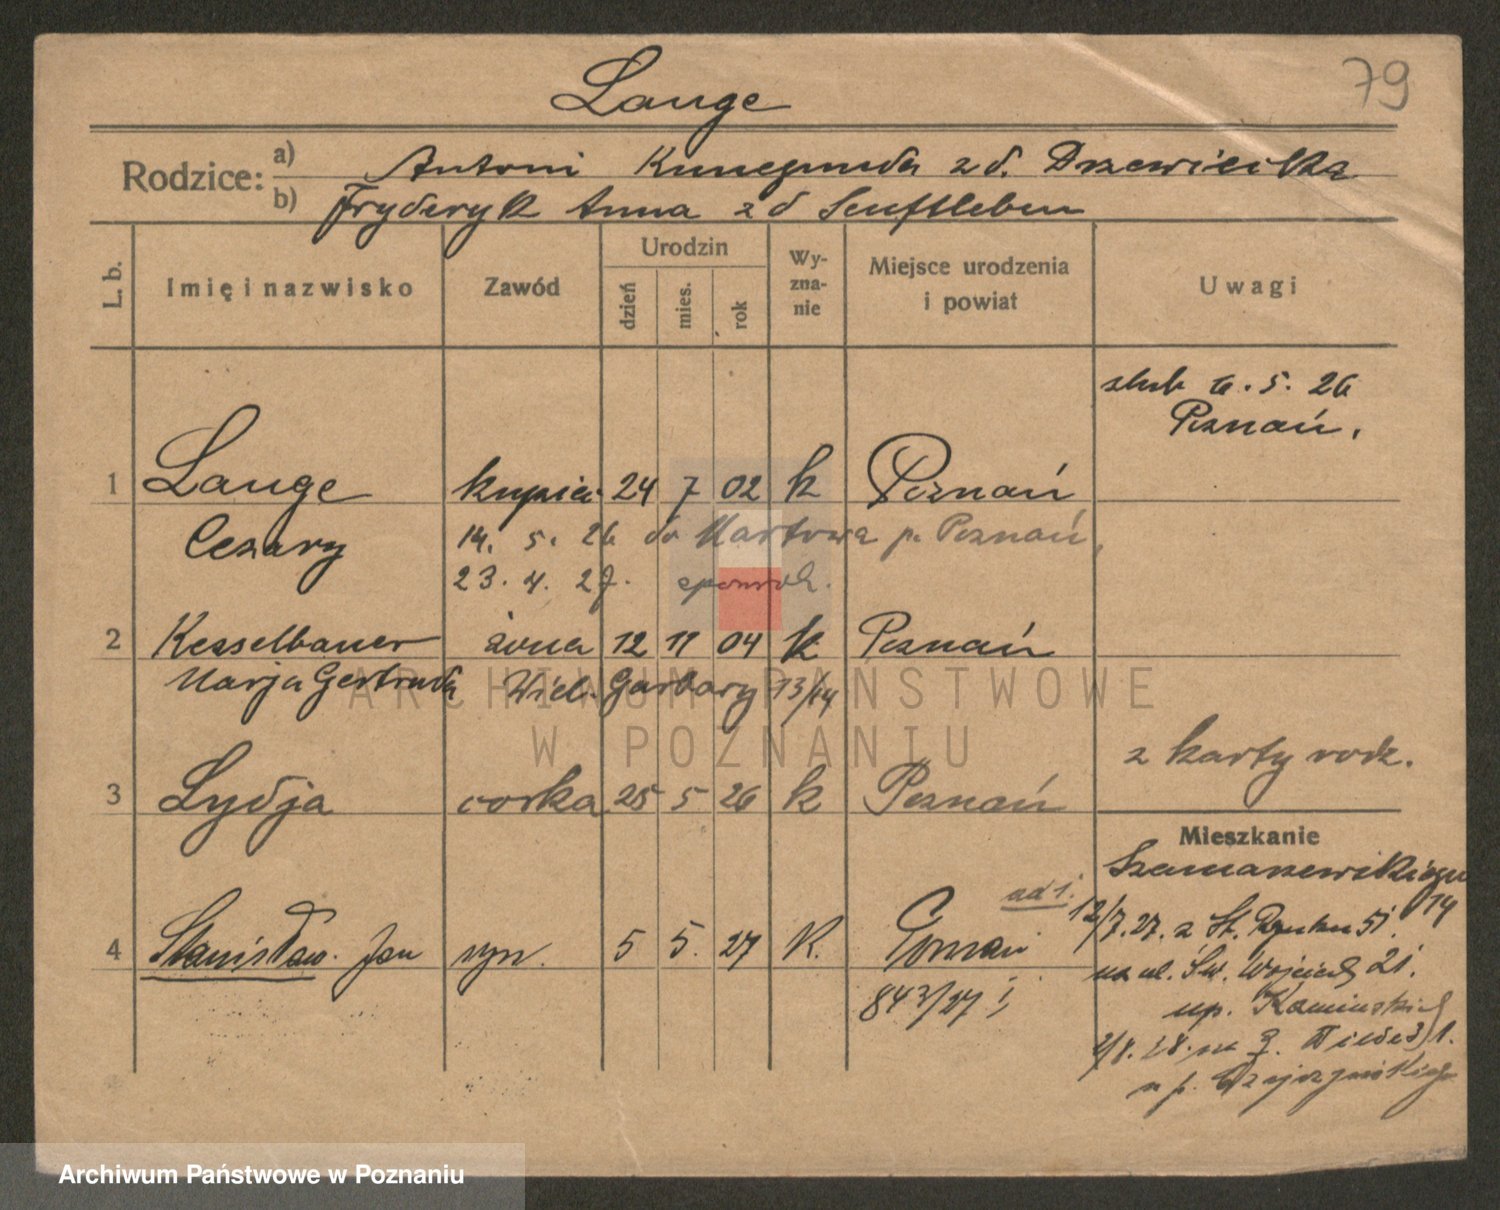 79
Lange
Rodzice: a) Antoni Kunegunda z d. Drzewiecka
b) Fryderyk Anna z d Senftleben
L. b. Imię i nazwisko Zawód Urodzin dzień mies. rok Wyznanie Miejsce urodzenia i powiat Uwagi
ślub 6. 5. 26
Poznań.
1 Lange kupiec 24 7 02 k Poznań
Cezary 14. 5. 26 do Kartowa p. Poznań
23. 4. 27.
2 Kesselbauer żona 12 11 04 k Poznań
Marja Gertruda Wiel. Garbary 13/14
z karty rodz.
3 Lydja corka 25 5 26 k Poznań
Mieszkanie
Szamarzewskiego
14
ad 1.
12/7.27. z St. Rynku 51.
4 Stanisław Jan syn. 5 5. 27 k. Poznań
na ul. Św. Wojciech 21.
843/27
up. Kamiński
ARCHIWUM PAŃSTWOWE
W POZNANIU
Archiwum Państwowe w Poznaniu